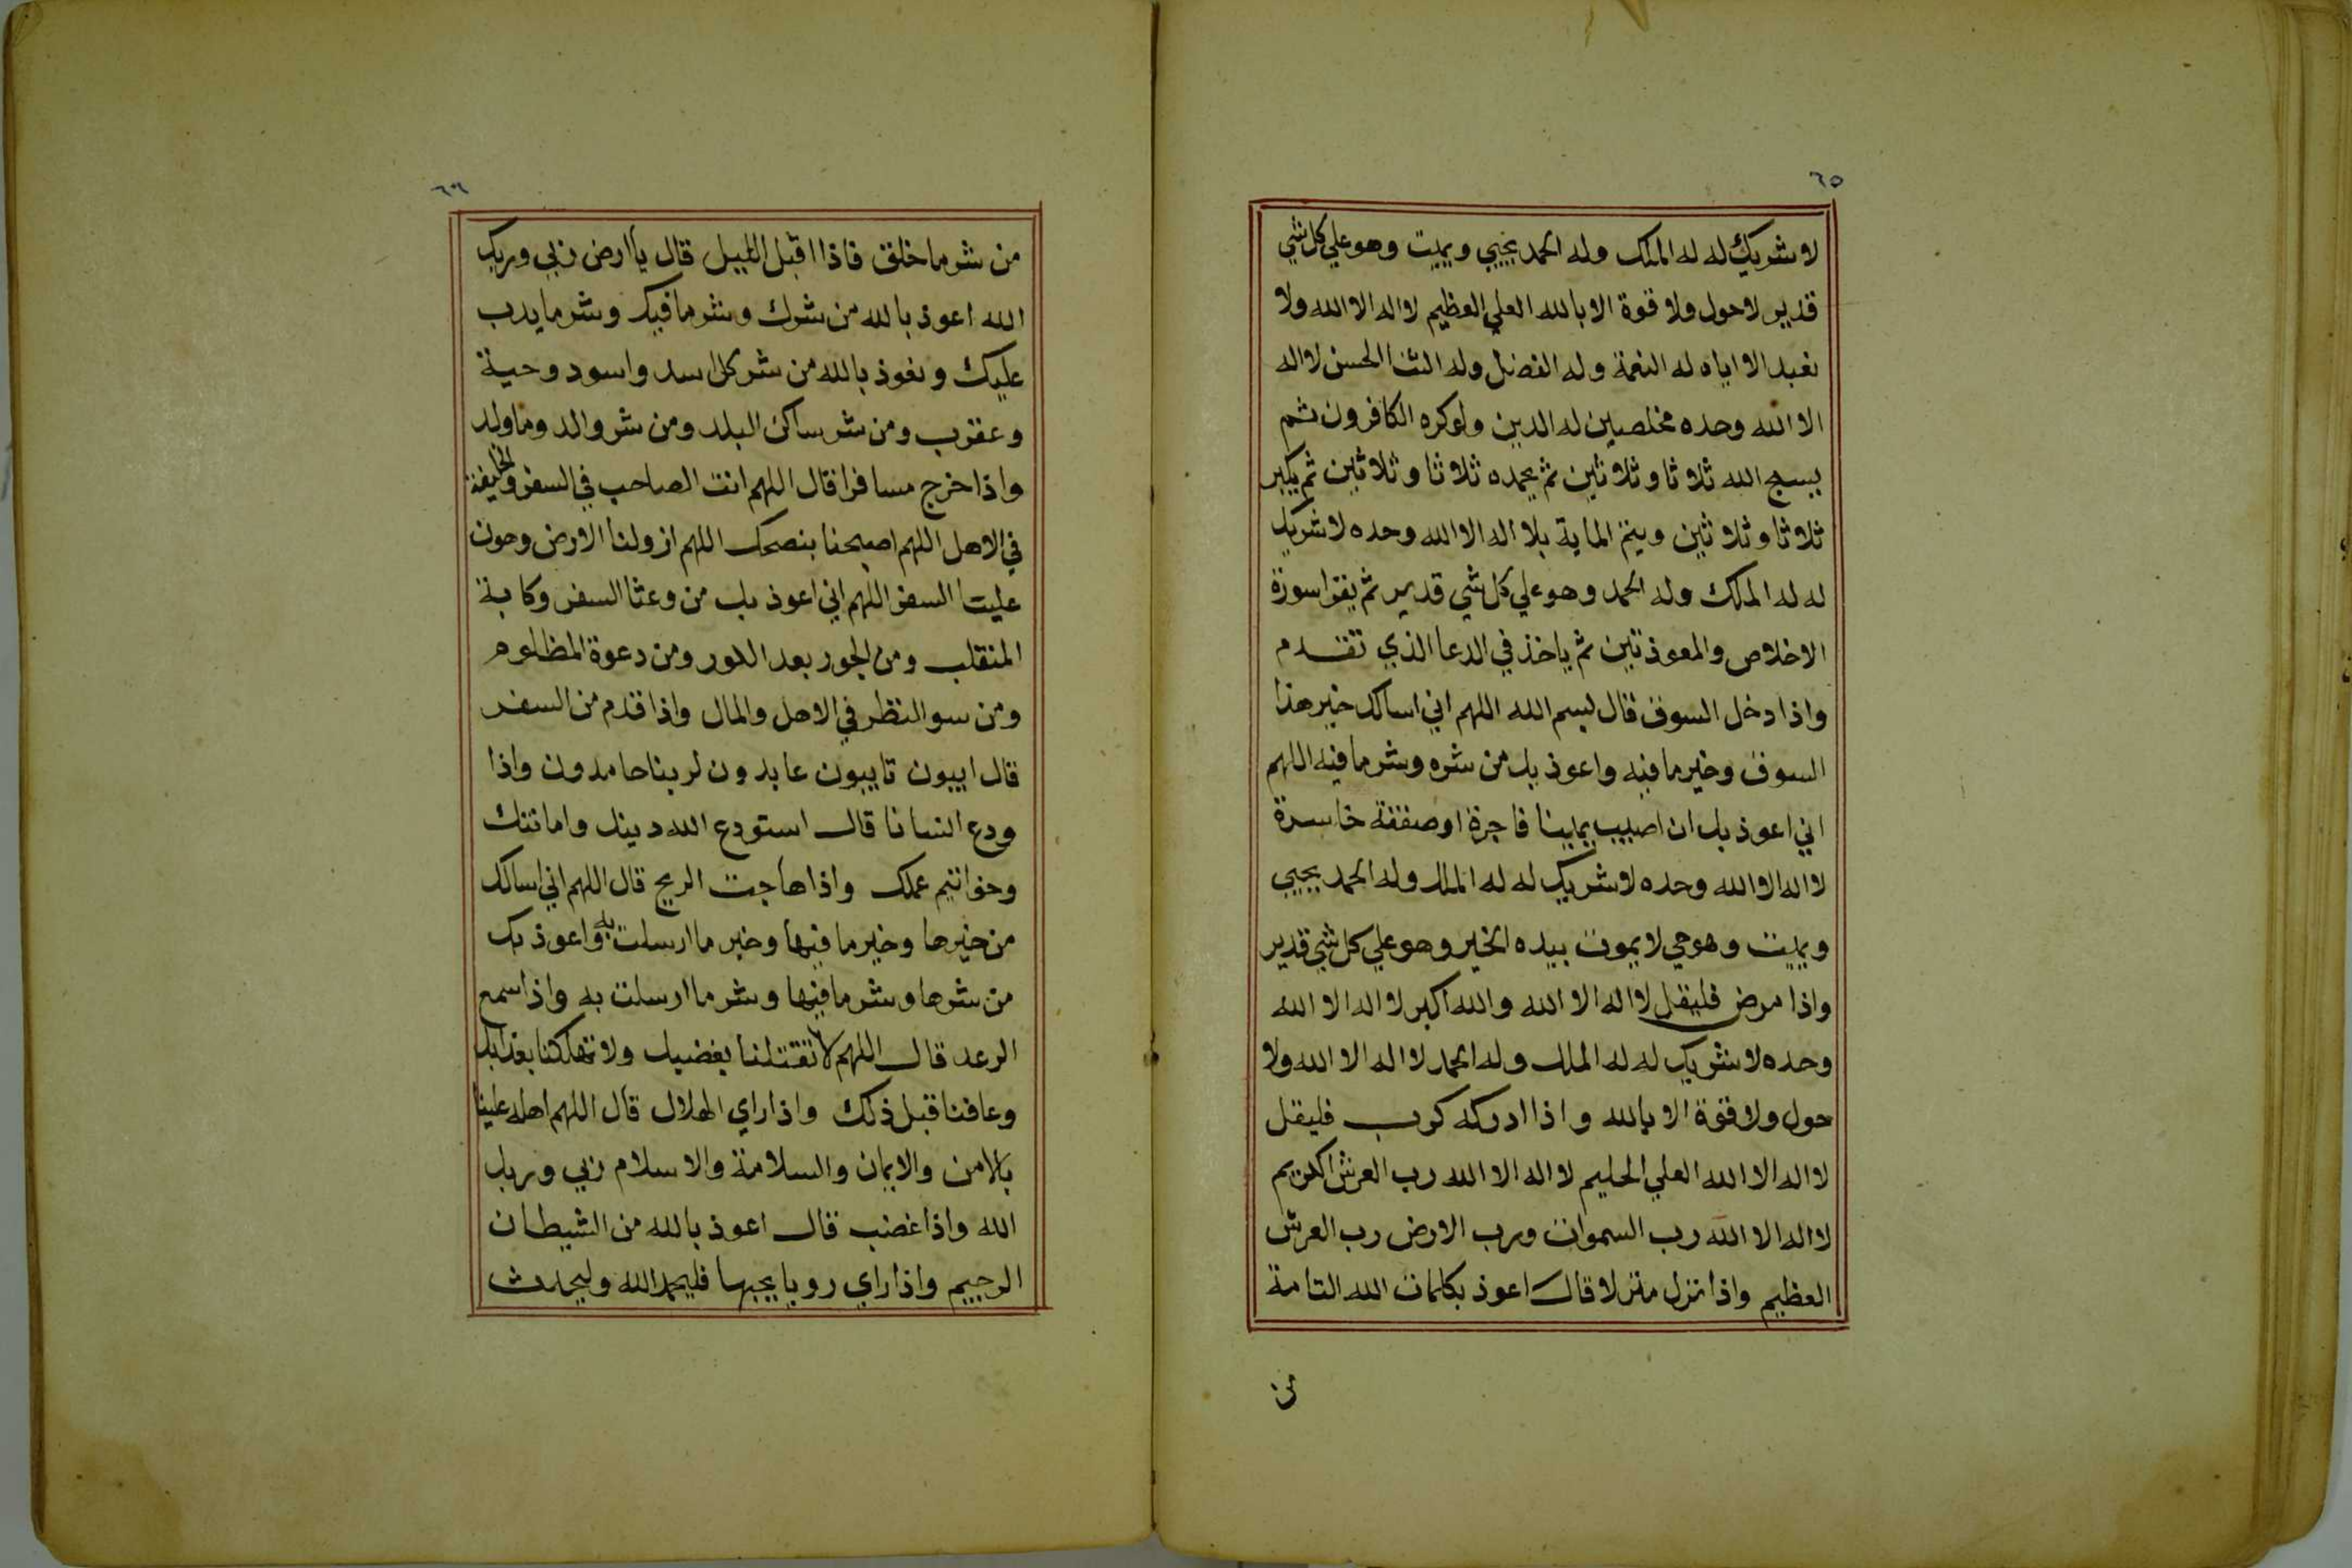 ٦٥
لا شريك له له الملك وله الحمد يحيي ويميت وهو علي كل شي
قدير لا حول ولا قوة الا بالله العلي العظيم لا اله الا الله ولا
نعبد الا اياه له النعمة وله الفضل وله الثنا الحسن لا اله
الا الله وحده مخلصين له الدين ولو كره الكافرون ثم
يسبح الله ثلاثا وثلاثين ثم يحمده ثلاثا وثلاثين ثم يكبر
ثلاثا وثلاثين ويتم الماية بلا اله الا الله وحده لا شريك
له له الملك وله الحمد وهو علي كل شي قدير ثم يقرا سورة
الاخلاص والمعوذتين ثم ياخذ في الدعا الذي تقدم
واذا دخل السوق قال بسم الله اللهم اني اسالك خير هذا
السوق وخير ما فيه واعوذ بك من شره وشر ما فيه اللهم
اني اعوذ بك ان اصيب يمينا فاجرة او صفقة خاسرة
لا اله الا الله وحده لا شريك له له الملك وله الحمد يحيي
ويميت وهو حي لا يموت بيده الخير وهو علي كل شي قدير
واذا مرض فليقل لا اله الا الله والله اكبر لا اله الا الله
وحده لا شريك له له الملك وله الحمد لا اله الا الله ولا
حول ولا قوة الا بالله واذا ادركه كرب فليقل
لا اله الا الله العلي الحليم لا اله الا الله رب العرش الكريم
لا اله الا الله رب السموات ورب الارض رب العرش
العظيم واذا نزل منزلا قال اعوذ بكلمات الله التامة
من
٦٦
من شر ما خلق فاذا اقبل الليل قال يا ارض ربي وربك
الله اعوذ بالله من شرك وشر ما فيك وشر ما يدب
عليك ونعوذ بالله من شر كل اسد واسود وحية
وعقرب ومن شر ساكن البلد ومن شر والد وما ولد
واذا خرج مسافرا قال اللهم انت الصاحب في السفر والخليفة
في الاهل اللهم اصبحنا بنصحك اللهم ازو لنا الارض وهون
علينا السفر اللهم اني اعوذ بك من وعثا السفر وكابة
المنقلب ومن الحور بعد الكور ومن دعوة المظلوم
ومن سو النظر في الاهل والمال واذا قدم من السفر
قال ايبون تايبون عابدون لربنا حامدون واذا
ودع انسانا قال استودع الله دينك وامانتك
وخواتيم عملك واذا هاجت الريح قال اللهم اني اسالك
من خيرها وخير ما فيها وخير ما ارسلت به واعوذ بك
من شرها وشر ما فيها وشر ما ارسلت به واذا سمع
الرعد قال اللهم لا تقتلنا بغضبك ولا تهلكنا بعذابك
وعافنا قبل ذلك واذا راي الهلال قال اللهم اهله علينا
بالامن والايمان والسلامة والاسلام ربي وربك
الله واذا غضب قال اعوذ بالله من الشيطان
الرجيم واذا راي رويا يحبها فليحمد الله وليحدث